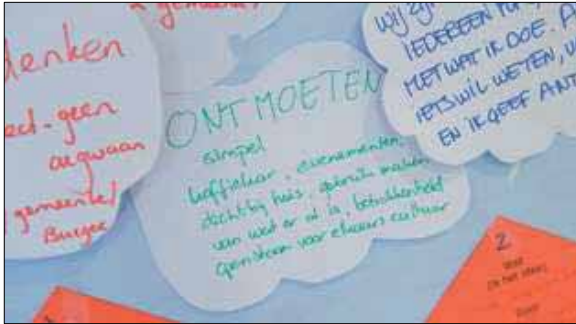 gemeente
denken
geen
argwaan
gemeente/
Burger
ONTMOETEN
simpel
koffiehoek, evenementen,
dichtbij huis, gebruik maken
van wat er al is, betrokkenheid
openstaan voor elkaars cultuur
WIJ ZIJN
IEDEREEN
MET WAT IK DOE. A
IETS WIL WETEN, U
EN IK GEEF ANT
2